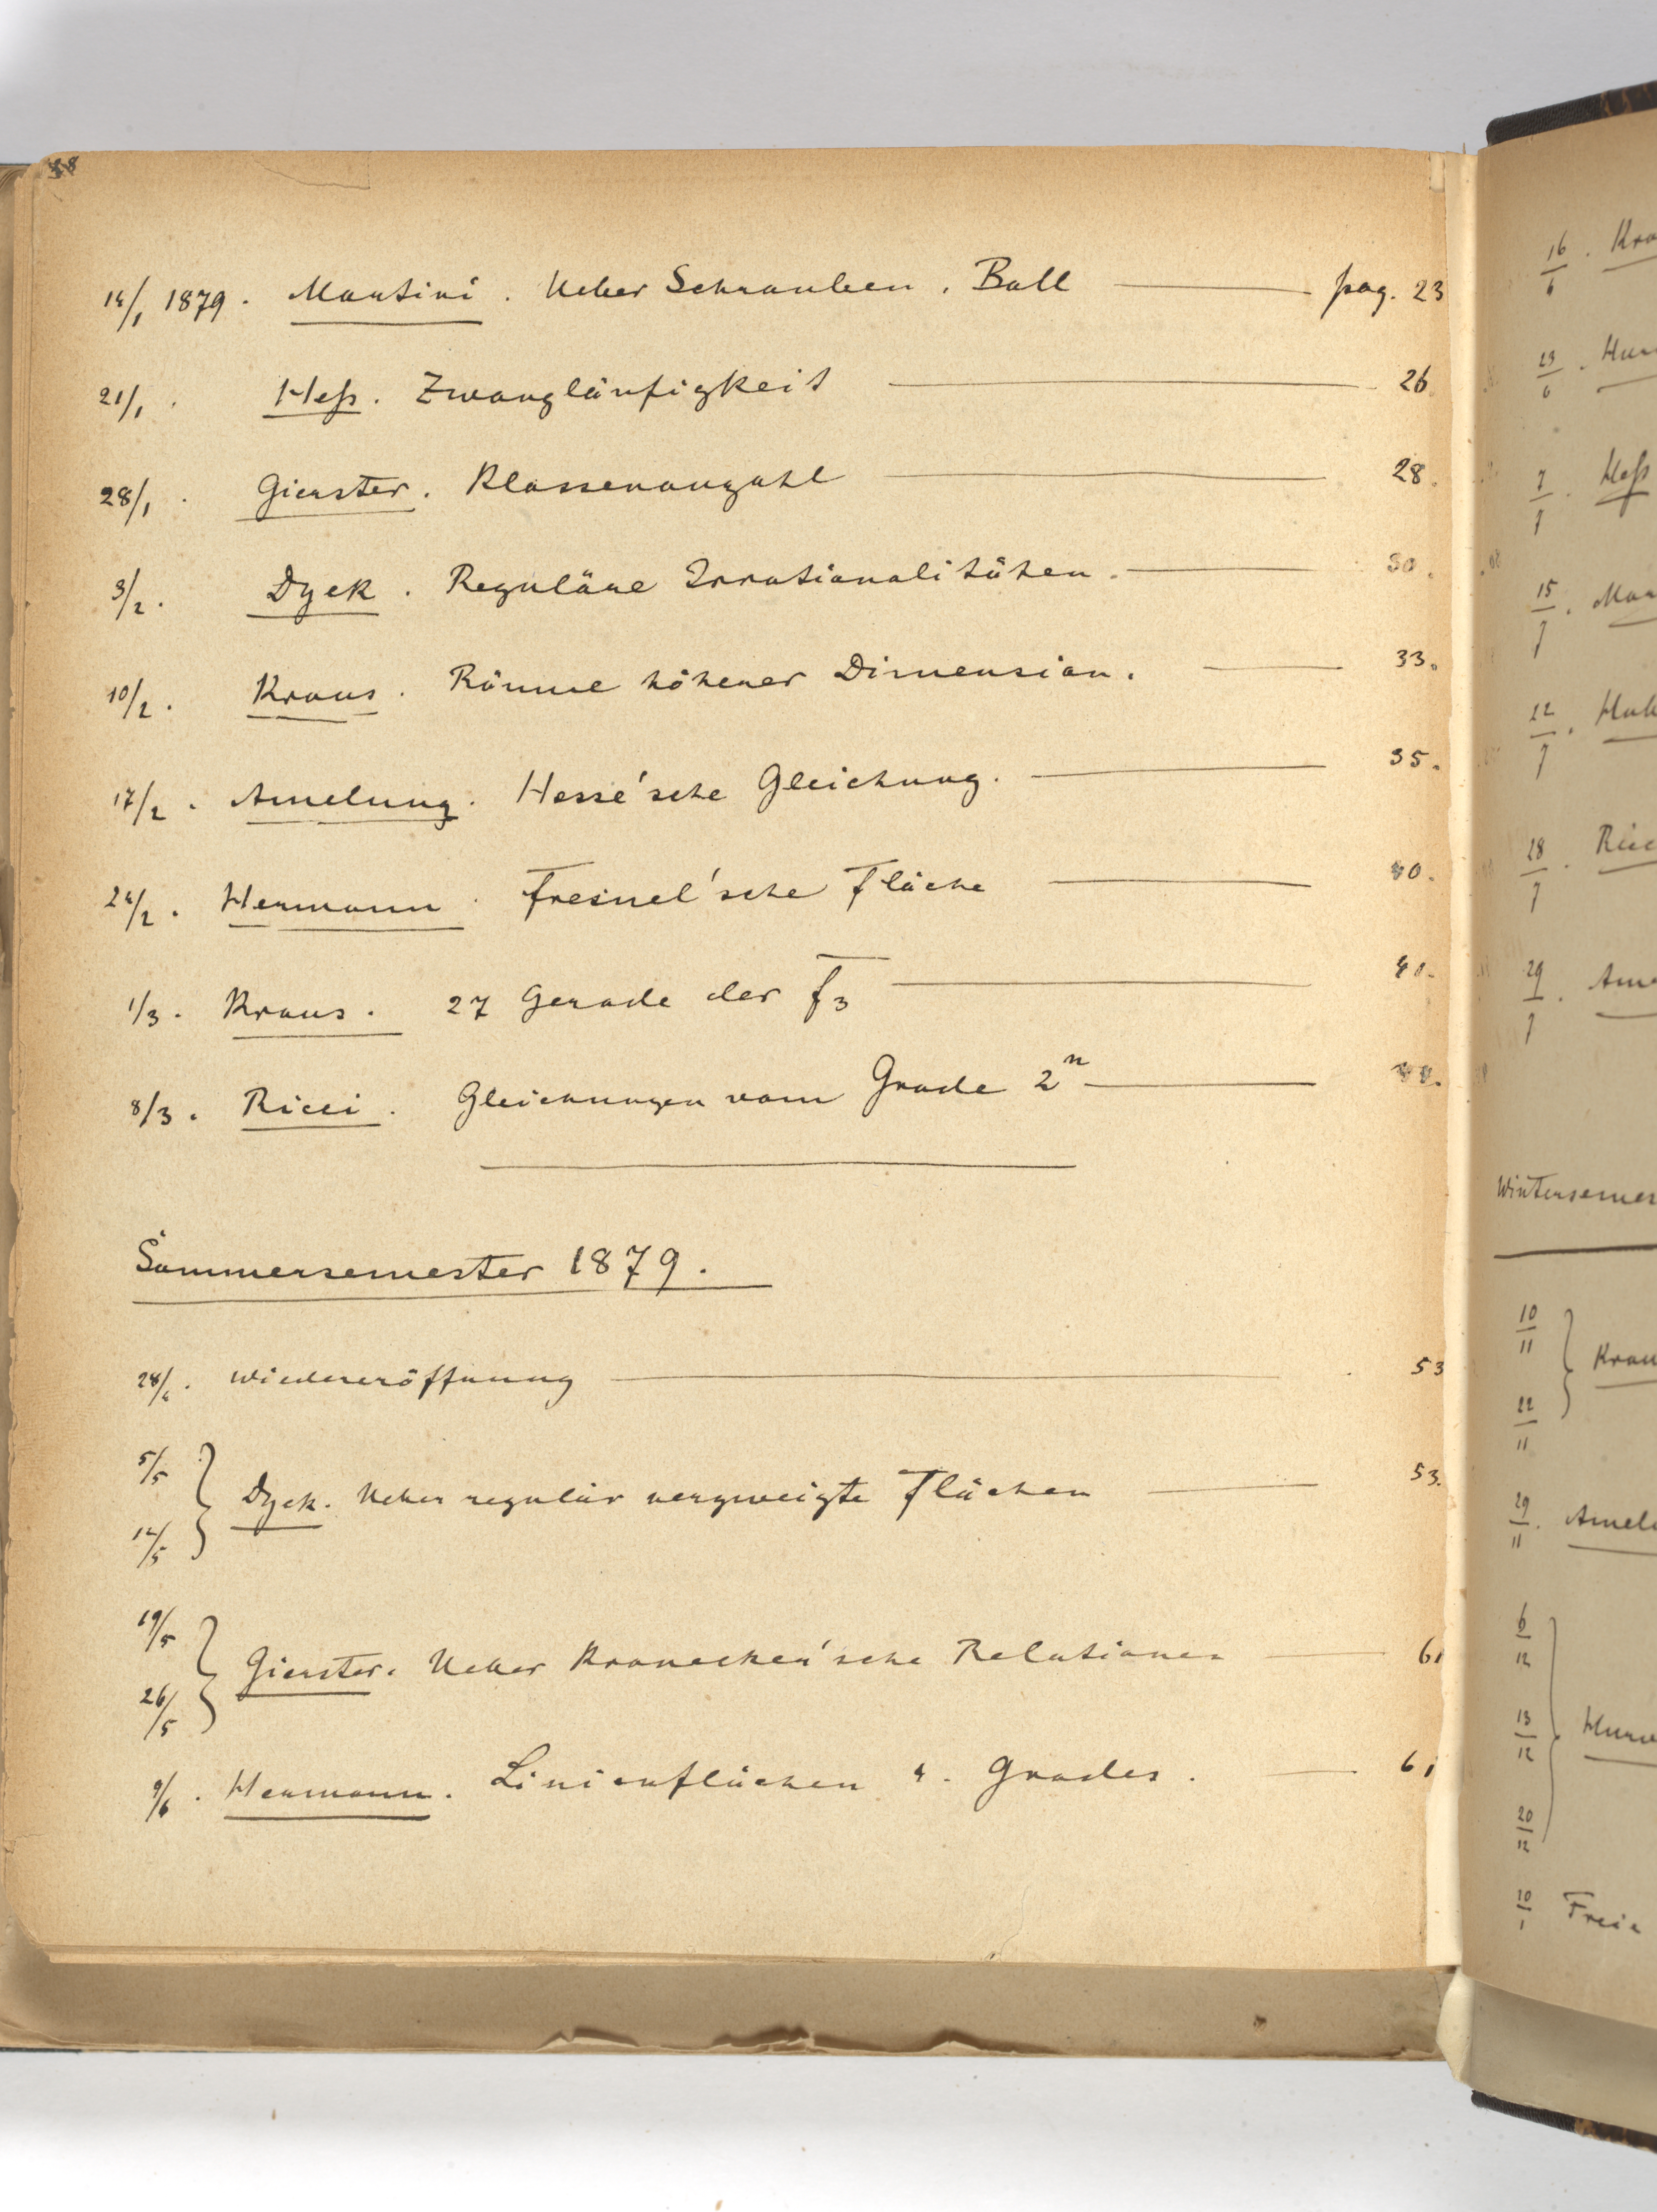 14/1 1879. Martini. Ueber Schrauben. Ball pag. 23
21/1. Heß. Zwangläufigkeit 26.
28/1. Gierster. Klassenanzahl 28.
3/2. Dyck. Reguläre Irrationalitäten. 30.
10/2. Kraus. Räume höherer Dimension. 33.
17/2. Amelung. Hesse'sche Gleichung. 35.
24/2. Hermann. Fresnel'sche Fläche 40.
1/3. Kraus. 27 Gerade der f₃ 41.
8/3. Ricci. Gleichungen vom Grade 2ⁿ
Sommersemester 1879.
28/4. Wiedereröffnung 53
5/5
12/5
Dyck. Ueber regulär verzweigte Flächen 53.
19/5
26/5
Gierster. Ueber Kronecker'sche Relationen 61
9/6. Hermann. Linienflächen 4. Grades. 61
16/6. Kra
23/6.
7/7. Heß
15/7. Mar
22/7.
28/7. Ricc
29/7. Ame
Wintersemes
10/11
22/11
Krau
29/11. Amel
6/12
13/12
20/12
Hurw
10/1 Freie